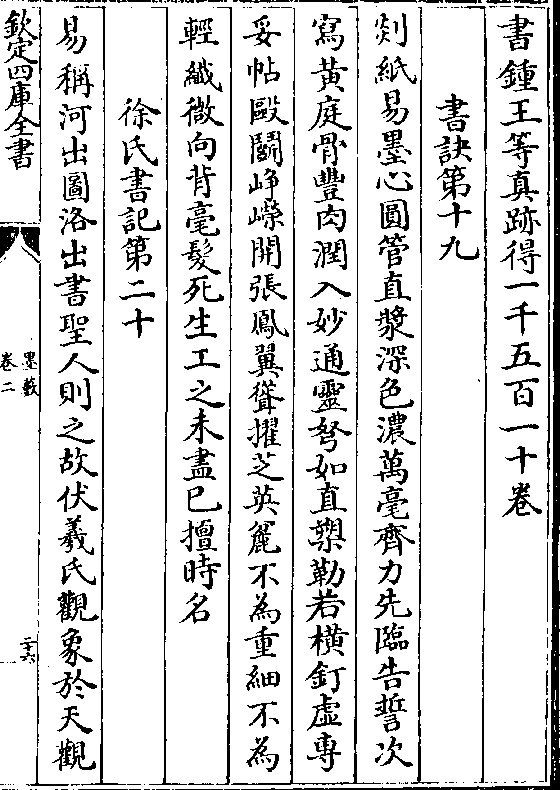 書鍾王等真跡得一千五百一十卷
書訣第十九
剡紙易墨心圓管直漿深色濃萬毫齊力先臨告誓次
寫黃庭骨豐肉潤入妙通靈努如直槊勒若橫釘虛專
妥帖毆鬬崢嶸開張鳳翼聳擢芝英麄不為重細不為
輕纖微向背毫髮死生工之未盡已擅時名
徐氏書記第二十
易稱河出圖洛出書聖人則之故伏羲氏觀象於天觀
欽定四庫全書
墨藪
卷二
二十六